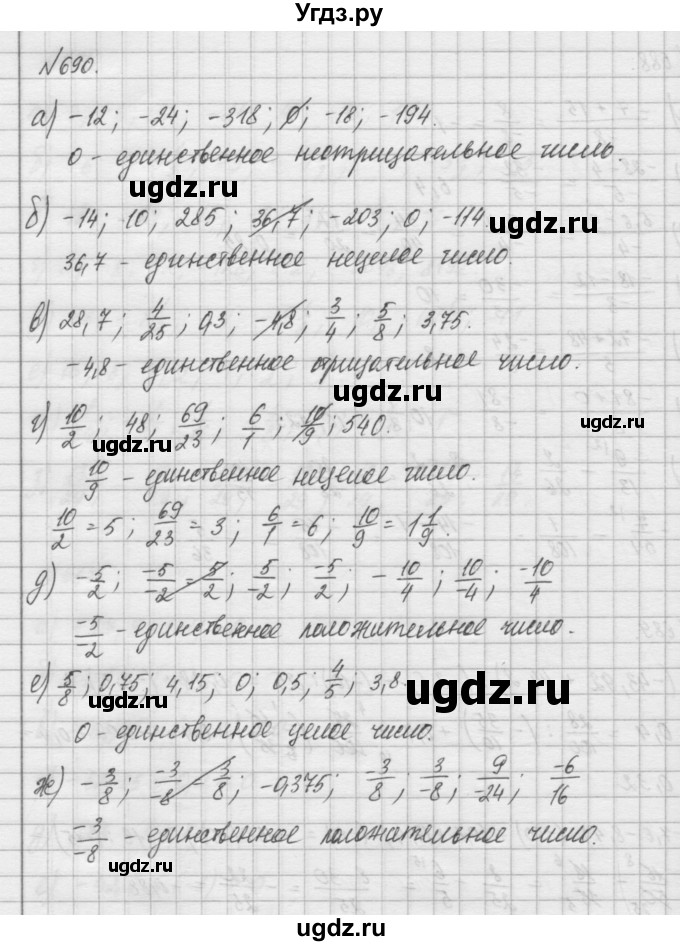 Угдз.ру
№690.
а) -12; -24; -318; 0; -18; -194.
0 - единственное неотрицательное число.
ugdz.ru
ugdz.ru
б) -14; 10; 285; 36,7; -203; 0; -114.
36,7 - единственное нецелое число.
в) 28,7; 4/25; 0,3; -4,8; 3/4; 5/8; 3,75.
-4,8 - единственное отрицательное число.
ugdz.ru
г) 10/2; 48; 69/23; 6/1; 10/9; 540.
ugdz.ru
ugdz.ru
10/9 - единственное нецелое число.
10/2 = 5; 69/23 = 3; 6/1 = 6; 10/9 = 1 1/9.
ugdz.ru
д) -5/2; -5/-2 = 5/2; 5/-2; -5/2; -10/4; 10/-4; -10/4
-5/-2 - единственное положительное число.
е) 5/8; 0,75; 4,15; 0; 0,5; 4/5; 3,8.
ugdz.ru
0 - единственное целое число.
ugdz.ru
ж) -3/8; -3/-8 = 3/8; -0,375; -3/8; 3/-8; 9/-24; -6/16
-3/-8 - единственное положательное число.
ugdz.ru
ugdz.ru
ugdz.ru